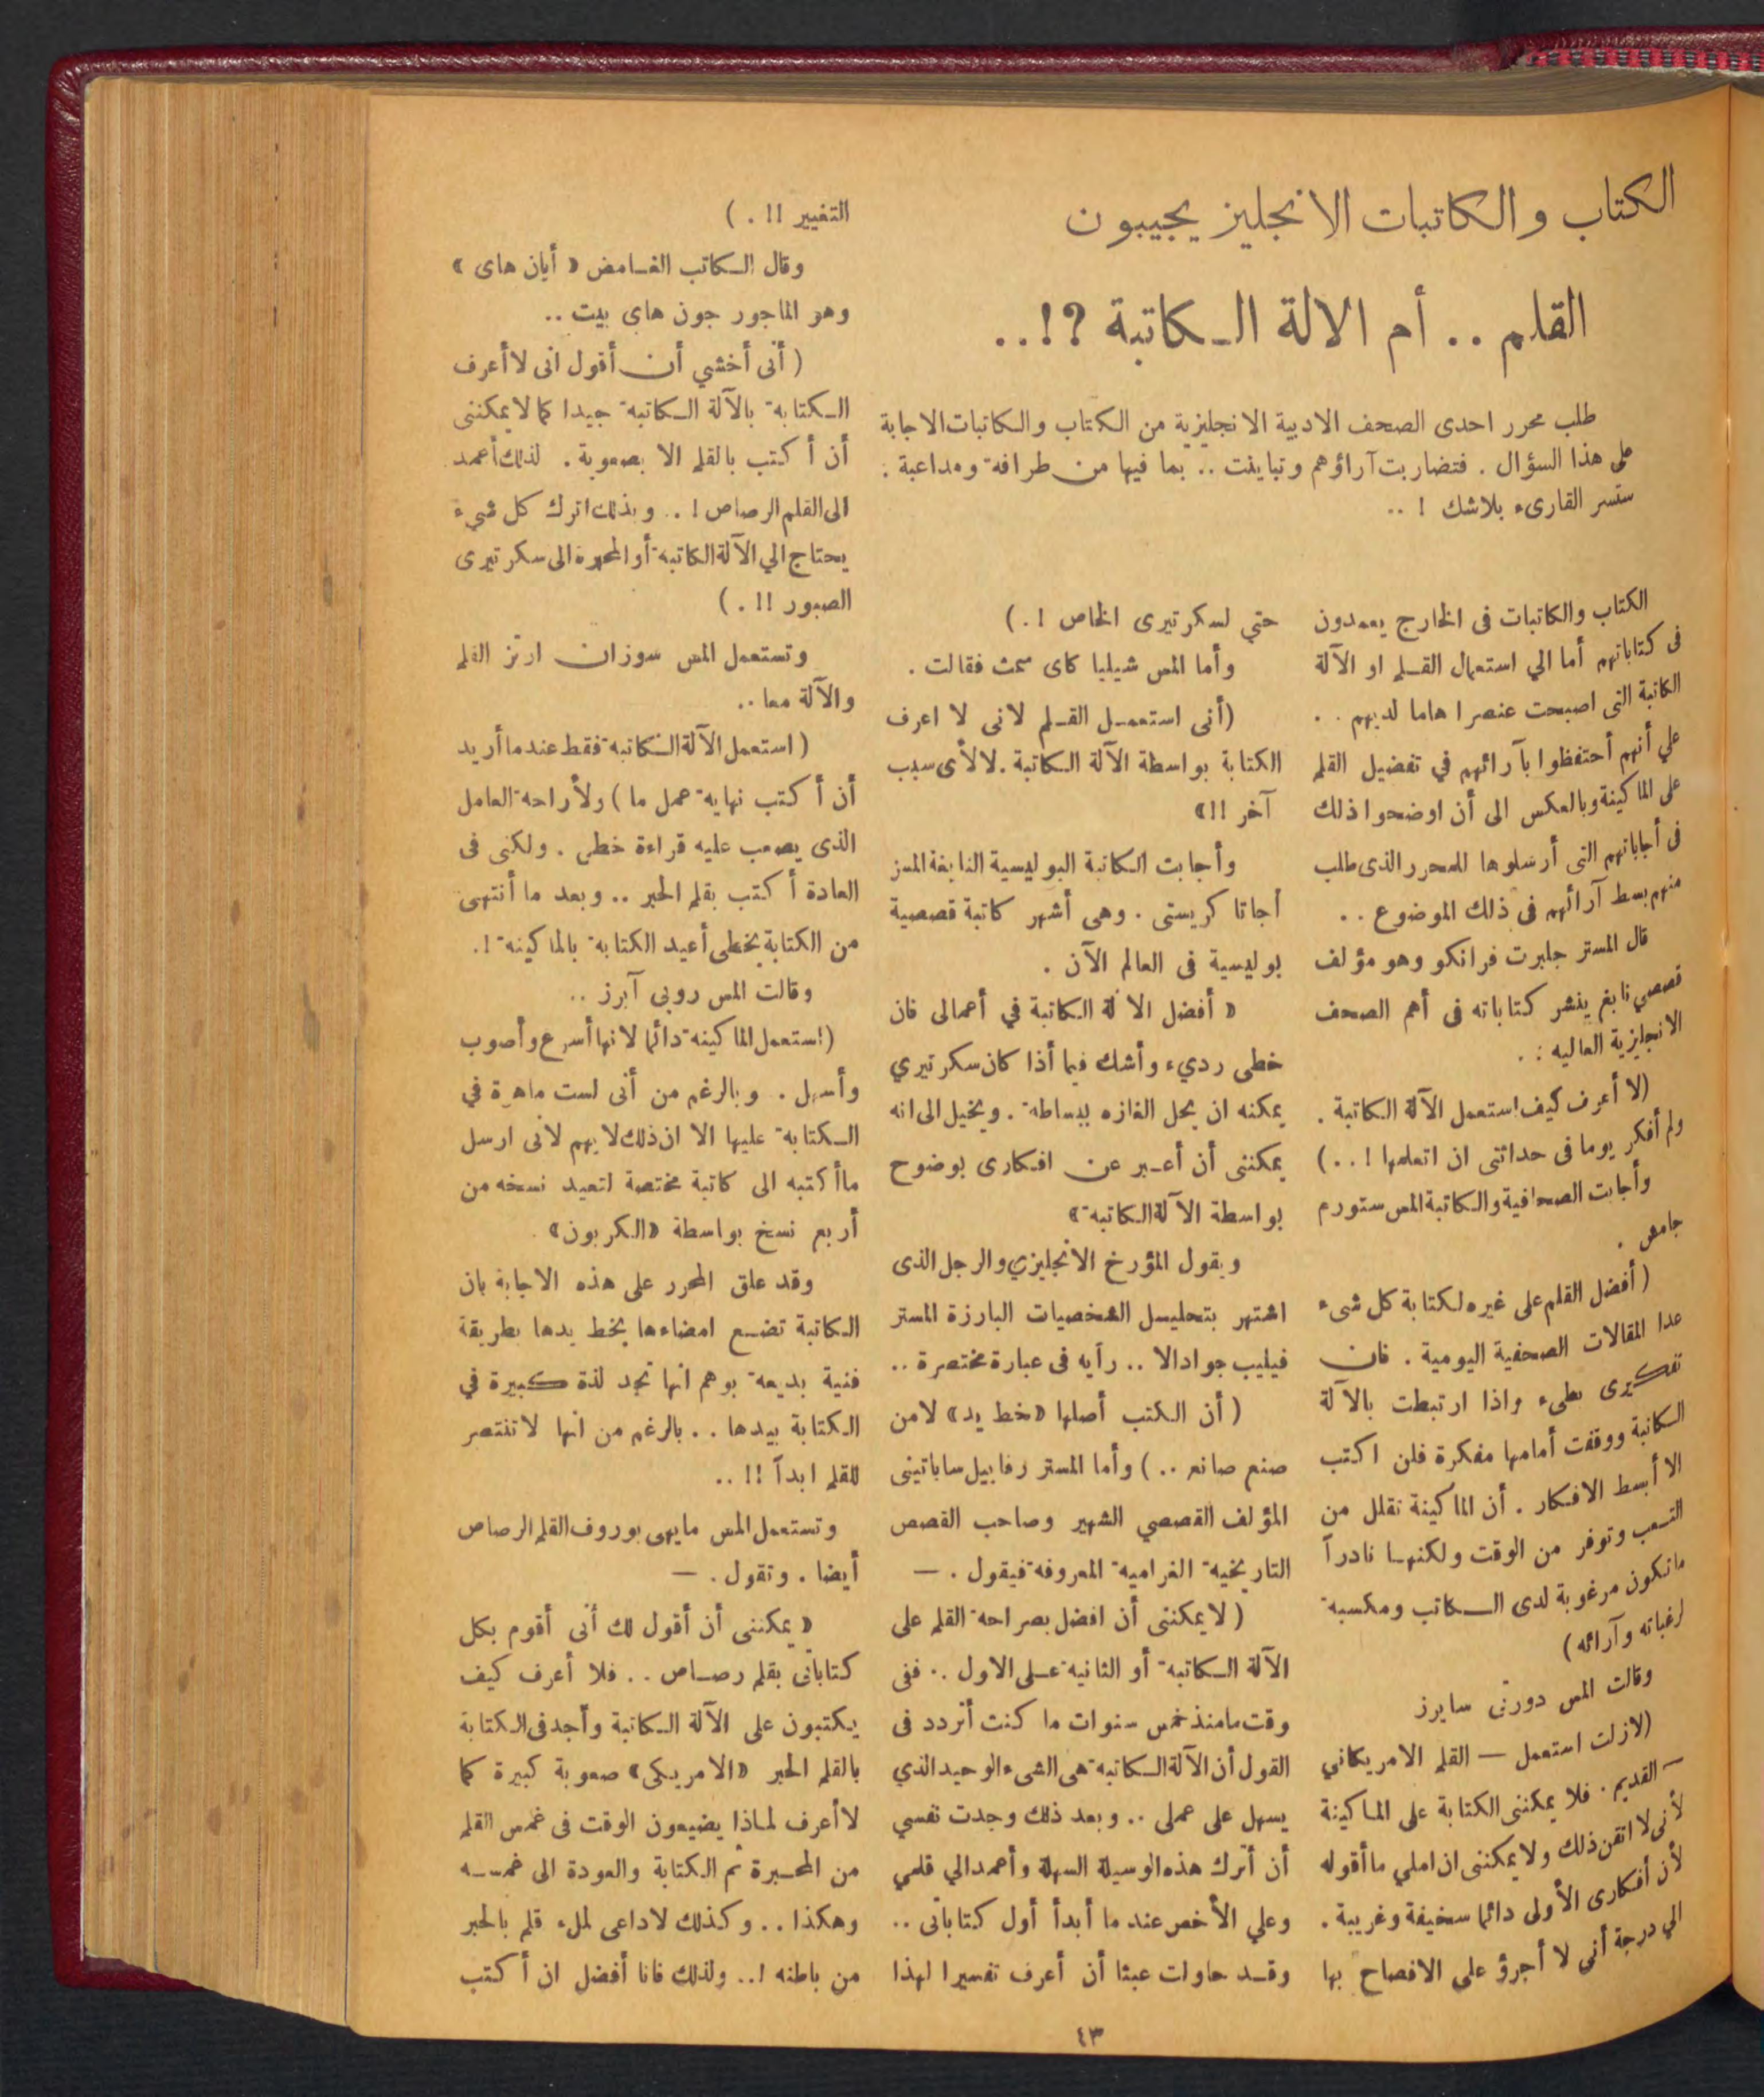 الكتاب والكاتبات الانجليز يجيبون
القلم .. أم الالة الكاتبة ?!..
طلب محرر احدى الصحف الادبية الانجليزية من الكتاب والكاتبات الاجابة
على هذا السؤال . فتضاربت آراؤهم وتباينت .. بما فيها من طرافة ومداعبة .
ستسر القارىء بلاشك ! ..
الكتاب والكاتبات فى الخارج يعمدون
فى كتاباتهم أما الي استعمال القلم او الآلة
الكاتبة التى اصبحت عنصرا هاما لديهم . .
علي أنهم أحتفظوا بآرائهم في تفضيل القلم
على الماكينة وبالعكس الى أن اوضحوا ذلك
فى أجاباتهم التى أرسلوها للمحرر الذى طلب
منهم بسط آرائهم فى ذلك الموضوع . .
قال المستر جلبرت فرانكو وهو مؤلف
قصصي نابغ ينشر كتاباته فى أهم الصحف
الانجليزية العاليه : .
(لا أعرف كيف استعمل الآلة الكاتبة .
ولم أفكر يوما فى حداثتى ان اتعلمها ! . .)
وأجابت الصحافية والكاتبة المس ستورم
جامس .
(أفضل القلم على غيره لكتابة كل شىء
عدا المقالات الصحفية اليومية . فان
تفكيرى بطىء واذا ارتبطت بالآلة
الكاتبة ووقفت أمامها مفكرة فلن اكتب
الا أبسط الافكار . أن الماكينة تقلل من
التعب وتوفر من الوقت ولكنها نادراً
ماتكون مرغوبة لدى الكاتب ومكسبة
لرغباته وآرائه)
وقالت المس دورثى سايرز
(لازلت استعمل — القلم الامريكاني
— القديم . فلا يمكننى الكتابة على الماكينة
لأنى لا اتقن ذلك ولا يمكننى ان املي ماأقوله
لأن أفكارى الأولى دائما سخيفة وغريبة .
الي درجة أنى لا أجرؤ على الافصاح بها
حتي لسكرتيرى الخاص ! .)
وأما المس شيليا كاى سمث فقالت .
(أنى استعمل القلم لانى لا اعرف
الكتابة بواسطة الآلة الكاتبة . لالأى سبب
آخر !! »
وأجابت الكاتبة البوليسية النابغة المسز
أجاتا كريستى . وهى أشهر كاتبة قصصية
بوليسية فى العالم الآن .
« أفضل الالة الكاتبة في أعمالى فان
خطى رديء وأشك فيما أذا كان سكرتيري
يمكنه ان يحل الغازه ببساطة . ويخيل الى انه
يمكننى أن أعبر عن افكارى بوضوح
بواسطة الآلة الكاتبة »
ويقول المؤرخ الانجليزي والرجل الذى
اشتهر بتحليل الشخصيات البارزة المستر
فيليب جوادالا .. رأيه فى عبارة مختصرة ..
( أن الكتب أصلها «خط يد» لامن
صنع صانع .. ) وأما المستر رفاييل ساباتينى
المؤلف القصصي الشهير وصاحب القصص
التاريخية الغرامية المعروفة فيقول . —
( لا يمكننى أن افضل بصراحة القلم على
الآلة الكاتبة أو الثانية على الاول .. ففى
وقت مامنذ خمس سنوات ما كنت أتردد فى
القول أن الآلة الكاتبة هى الشىء الوحيد الذي
يسهل على عملى .. وبعد ذلك وجدت نفسي
أن أترك هذه الوسيلة السهلة وأعمد الي قلمي
وعلي الأخص عند ما أبدأ أول كتاباتى ..
وقد حاولت عبثا أن أعرف تفسيرا لهذا
التغيير !! . )
وقال الكاتب الغامض « أيان هاى »
وهو الماجور جون هاى بيث ..
( أنى أخشي أن أقول انى لا أعرف
الكتابة بالآلة الكاتبة جيدا كما لا يمكننى
أن أكتب بالقلم الا بصعوبة . لذلك أعمد
الى القلم الرصاص ! .. وبذلك اترك كل شيء
يحتاج الي الآلة الكاتبة أو المحبرة الى سكرتيرى
الصبور !! . )
وتستعمل المس سوزان ارتز القلم
والآلة معا ..
( استعمل الآلة الكاتبة فقط عندما أريد
أن أكتب نهاية عمل ما ) ولأراحة العامل
الذى يصعب عليه قراءة خطى . ولكنى فى
العادة أكتب بقلم الحبر .. وبعد ما أنتهى
من الكتابة بخطى أعيد الكتابة بالماكينة ! .
وقالت المس روبى آيرز ..
(استعمل الماكينة دائما لانها أسرع وأصوب
وأسهل . وبالرغم من أنى لست ماهرة في
الكتابة عليها الا ان ذلك لا يهم لأنى ارسل
ماأكتبه الى كاتبة مختصة لتعيد نسخه من
أربع نسخ بواسطة «الكربون» .
وقد علق المحرر على هذه الاجابة بان
الكاتبة تضع امضاءها بخط يدها بطريقة
فنية بديعة يوهم انها تجد لذة كبيرة في
الكتابة بيدها . . بالرغم من انها لا تنتصر
للقلم ابدآ !! ..
وتستعمل المس مايهى بوروف القلم الرصاص
أيضا . وتقول . —
« يمكننى أن أقول لك أنى أقوم بكل
كتاباتى بقلم رصاص . . فلا أعرف كيف
يكتبون على الآلة الكاتبة وأجد فى الكتابة
بالقلم الحبر «الامريكى» صعوبة كبيرة كما
لا أعرف لماذا يضيعون الوقت فى غمس القلم
من المحبرة ثم الكتابة والعودة الى غمسه
وهكذا . . وكذلك لاداعى لملء قلم بالحبر
من باطنه ! .. ولذلك فانا أفضل ان أكتب
٤٣